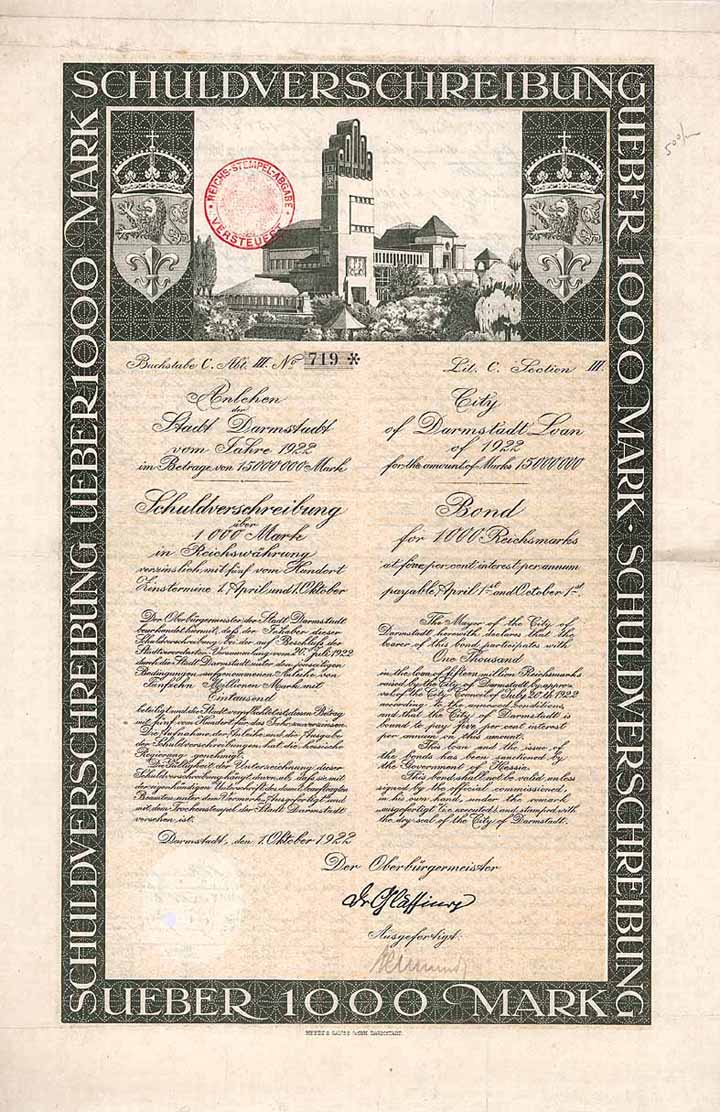 SCHULDVERSCHREIBUNG
UEBER 1000 MARK · SCHULDVERSCHREIBUNG
UEBER 1000 MARK
SCHULDVERSCHREIBUNG UEBER 1000 MARK
REICHS-STEMPEL-ABGABE
VERSTEUERT
500/
Buchstabe C. Abt. III. No 719 *
Anlehen
der
Stadt Darmstadt
vom Jahre 1922
im Betrage von 15000000 Mark
Schuldverschreibung
über
1000 Mark
in Reichswährung
verzinslich mit fünf vom Hundert
Zinstermine 1. April und 1. Oktober
Der Oberbürgermeister der Stadt Darmstadt
beurkundet hiermit, daß der Inhaber dieser
Schuldverschreibung bei der auf Beschluß der
Stadtverordneten Versammlung vom 20. Juli 1922
durch die Stadt Darmstadt unter den jenseitigen
Bedingungen aufgenommenen Anleihe von
Fünfzehn Millionen Mark mit
Eintausend
beteiligt und die Stadt verpflichtet ist, dessen Betrag
mit fünf von Hundert für das Jahr zu verzinsen.
Die Aufnahme der Anleihe und die Ausgabe
der Schuldverschreibungen hat die hessische
Regierung genehmigt.
Die Gültigkeit der Unterzeichnung dieser
Schuldverschreibung hängt davon ab, daß sie mit
der eigenhändigen Unterschrift des damit beauftragten
Beamten unter dem Vermerk: Ausgefertigt und
mit dem Trockenstempel der Stadt Darmstadt
versehen ist.
Darmstadt, den 1. Oktober 1922
Lit. C. Section III.
City
of Darmstadt Loan
of 1922
for the amount of Marks 15000000
Bond
for 1000 Reichsmarks
at five per cent interest per annum
payable April 1st and October 1st
The Mayor of the City of
Darmstadt herewith declares that the
bearer of this bond participates with
One Thousand
in the loan of fifteen million Reichsmarks
raised by the City of Darmstadt by appro-
val of the City Council of July 20th 1922
according to the annexed conditions,
and that the City of Darmstadt is
bound to pay five per cent interest
per annum in this amount.
This loan and the issue of
the bonds has been sanctioned by
the Government of Hessia.
This bond shall not be valid unless
signed by the official commissioned,
in his own hand, under the remark
ausgefertigt i.e. executed, and stamped with
the dry seal of the City of Darmstadt.
Der Oberbürgermeister
Dr Glässing
Ausgefertigt: